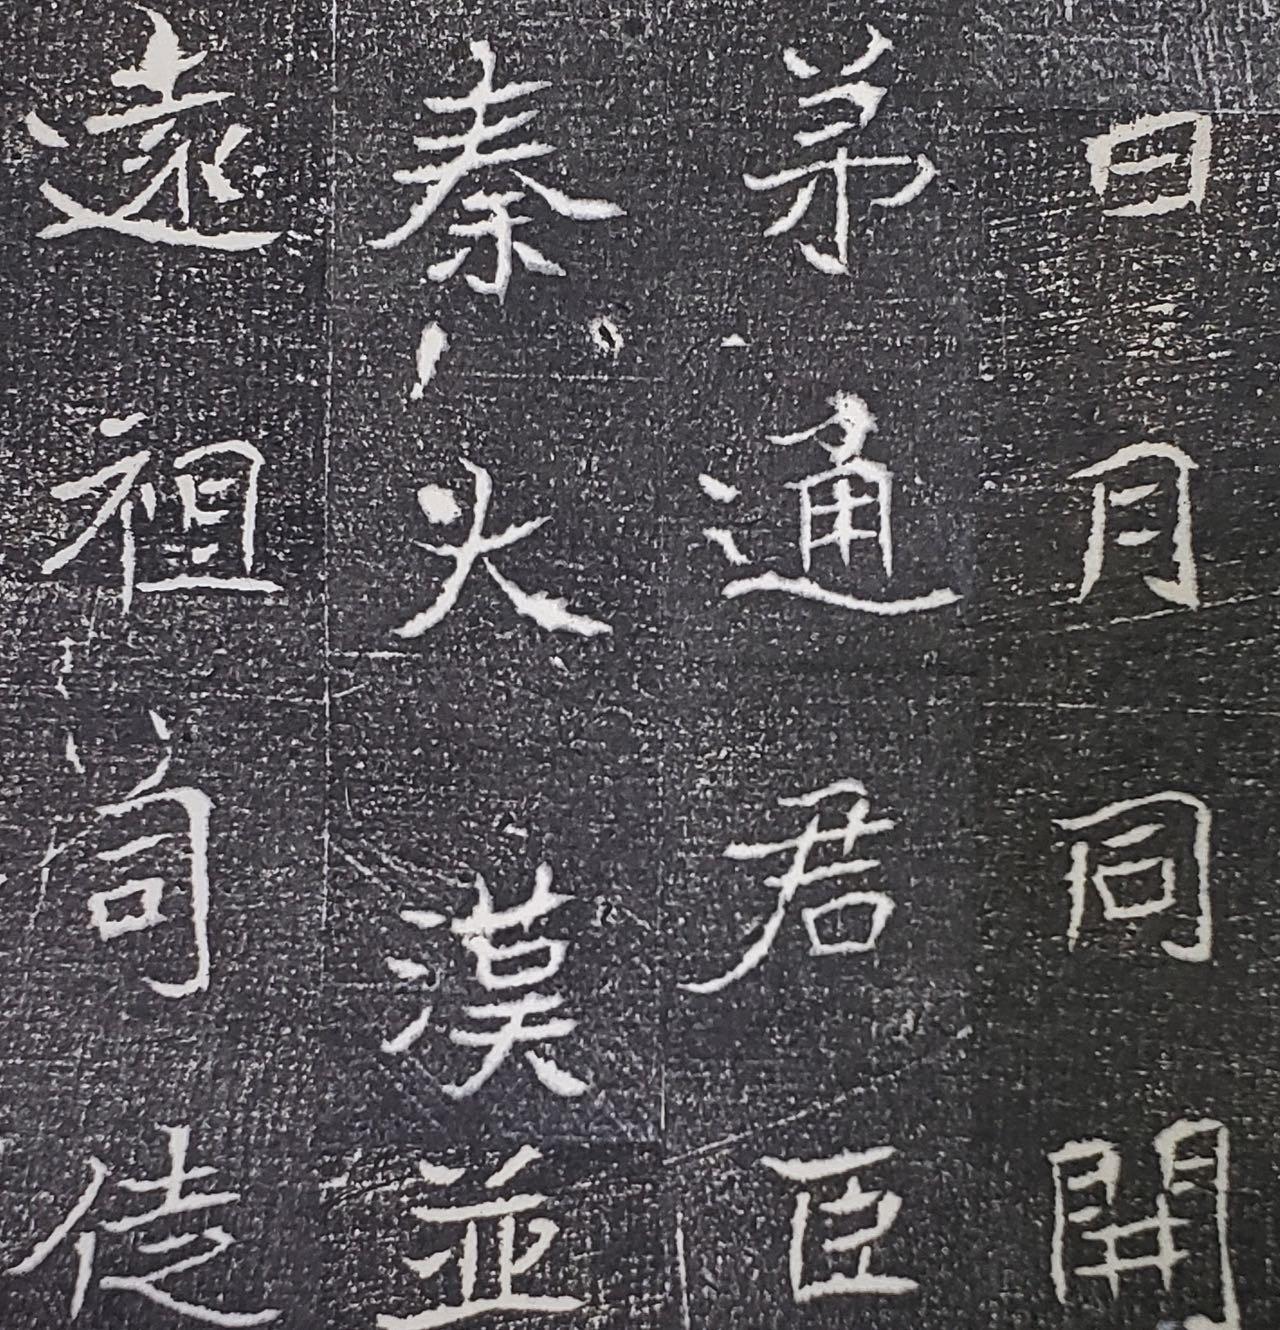 日月同開
茅通君臣
秦火漢並
遠祖苟徒